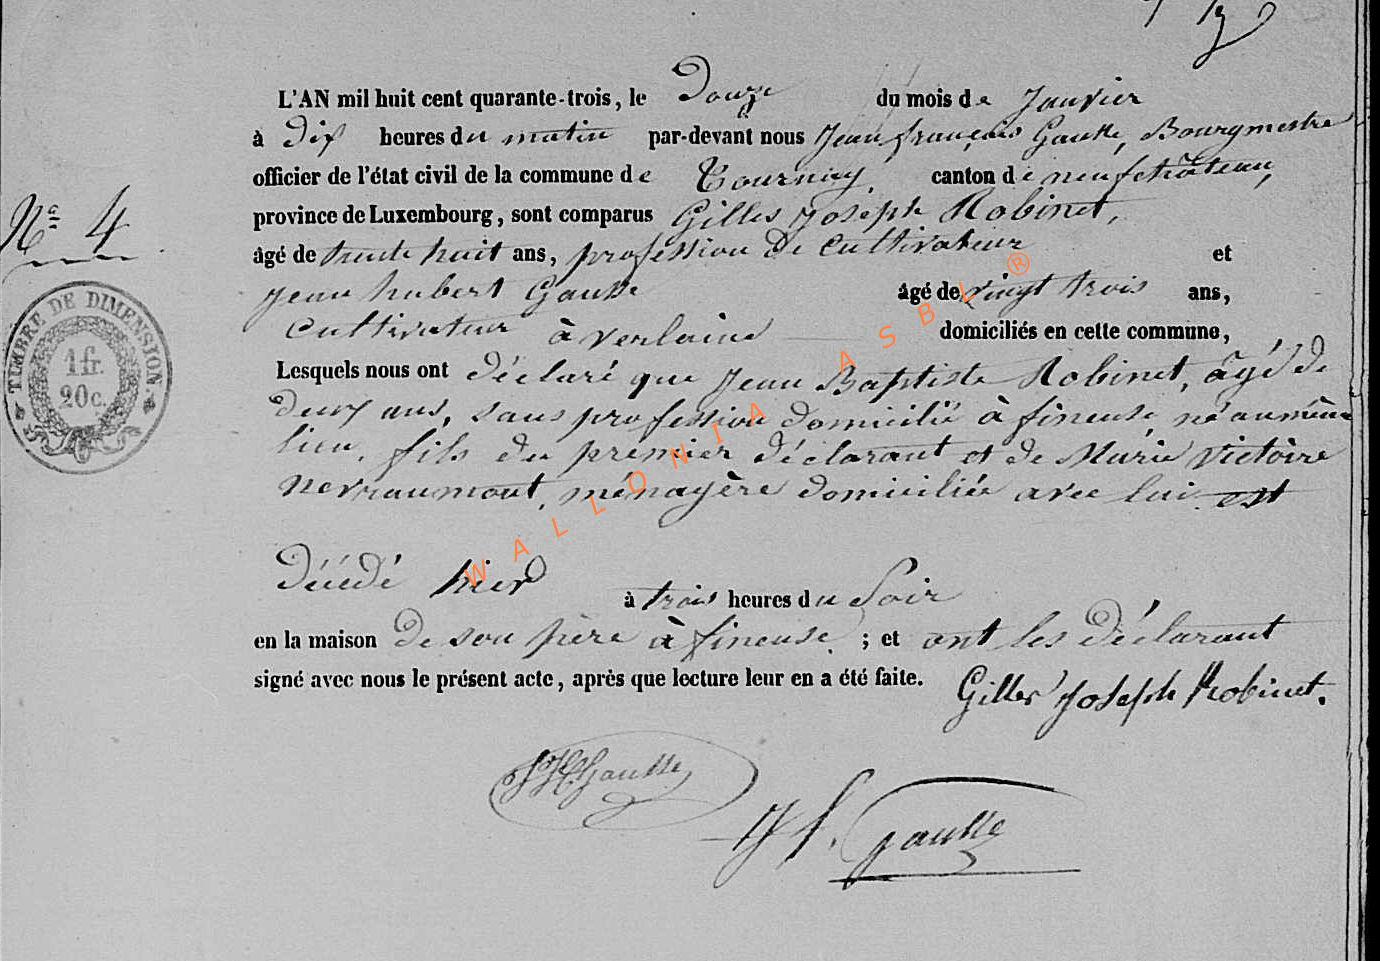 L'AN mil huit cent quarante-trois, le Douze du mois de Janvier
à Dix heures du matin par-devant nous Jean françois Gausse, Bourgmestre
officier de l'état civil de la commune de Tournay, canton de neufchâteau,
province de Luxembourg, sont comparus Gilles Joseph Robinet,
N° 4
âgé de trente huit ans, profession de cultivateur et
Jean hubert Gausse âgé de vingt trois ans,
Cultivateur à verlaine domiciliés en cette commune,
TIMBRE DE DIMENSION
1 fr.
20 c.
Lesquels nous ont déclaré que Jean Baptiste Robinet, âgé de
deux ans, sans profession domicilié à fineuse, né au même
lieu, fils du premier déclarant et de Marie victoire
Nevraumont, ménagère domiciliée avec lui est
Décédé hier
à trois heures du Soir
en la maison de son père à fineuse ; et ont les déclarant
signé avec nous le présent acte, après que lecture leur en a été faite.
Gilles Joseph Robinet.
JH Gausse
J f. Gausse
WALLONIA ASBL ®